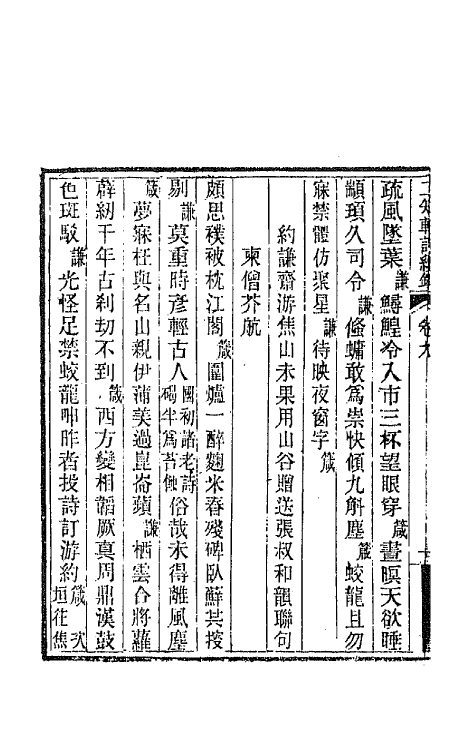 二知軒詩續鈔 卷九
疏風墜葉謙鱘鰉冷入市三杯望眼穿箴晝暝天欲睡
顓頊久司令謙鯈䗤敢為祟快傾九斛塵箴蛟龍且勿
寐禁體仿聚星謙待映夜窗字箴
約謙齋游焦山未果用山谷贈送張叔和韻聯句
柬僧芥航
頗思襆被枕江閣箴圍爐一醉麴米春殘碑臥蘚共搜
剔謙莫重時彥輕古人國初諸老詩碣半為苔蝕俗哉未得離風塵
箴夢寐枉與名山親伊蒲美過崑崙蘋謙栖雲合將蘿
薜紉千年古剎劫不到箴西方變相韜厥真周鼎漢鼓
色斑駁謙光怪足禁蛟龍呻昨者投詩訂游約箴次垣往焦